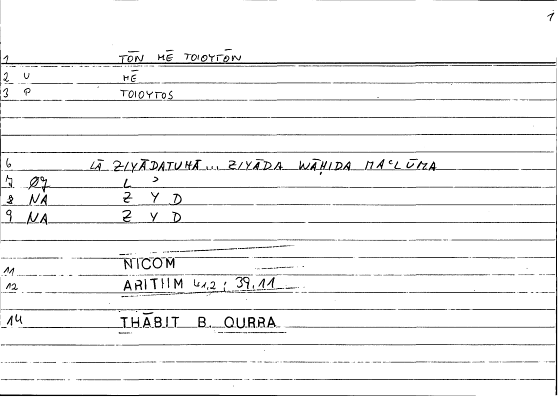 1
1 TŌN MĒ TOIOYTŌN
2 U MĒ
3 P TOIOYTOS
6 LĀ ZIYĀDATUHĀ... ZIYĀDA WĀḤIDA MAʿLŪMA
7 ØJ L ʾ
8 NA Z Y D
9 NA Z Y D
11 NICOM
12 ARITHM 41,2 ; 39,11
14 THĀBIT B. QURRA